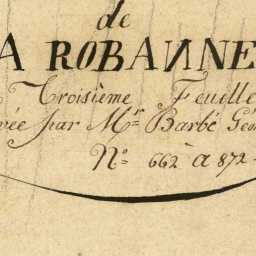 de
A ROBANNE
Troisième Feuille
vée par Mr. Barbé Géo
No. 662 a 872